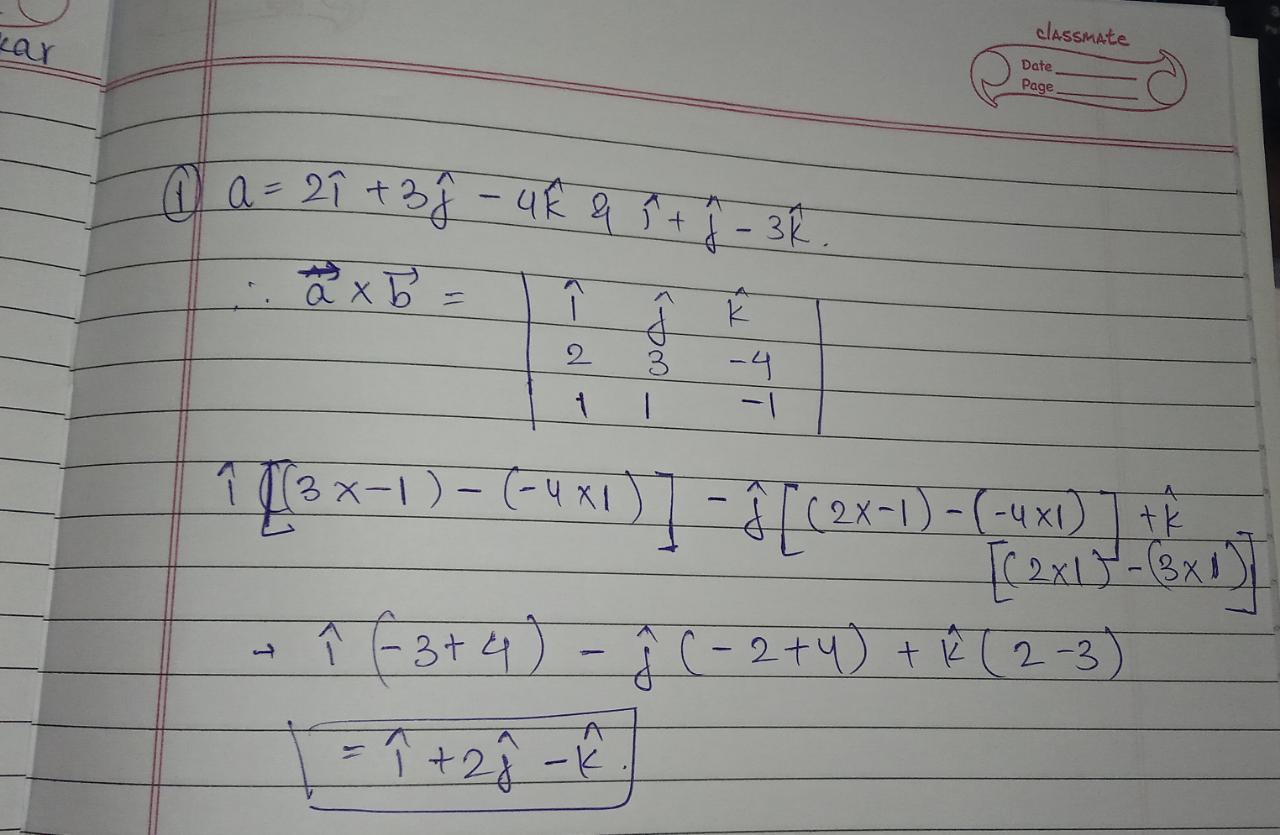 kar
classmate
Date
Page
① a = 2î + 3ĵ - 4k̂ & î + ĵ - 3k̂.
∴ a⃗ × b⃗ = | î ĵ k̂ |
2 3 -4
1 1 -1
î [(3 × -1) - (-4 × 1)] - ĵ [(2 × -1) - (-4 × 1)] + k̂
[(2 × 1) - (3 × 1)]
→ î (-3 + 4) - ĵ (-2 + 4) + k̂ (2 - 3)
= î + 2ĵ - k̂.